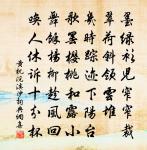 墨綠衫兒窄窄裁
翠荷斜領雲堆
幾時踪迹下陽台
歌罷櫻桃和露小
舞餘楊柳趁風回
喚人休訴十分杯
黃機浣溪沙